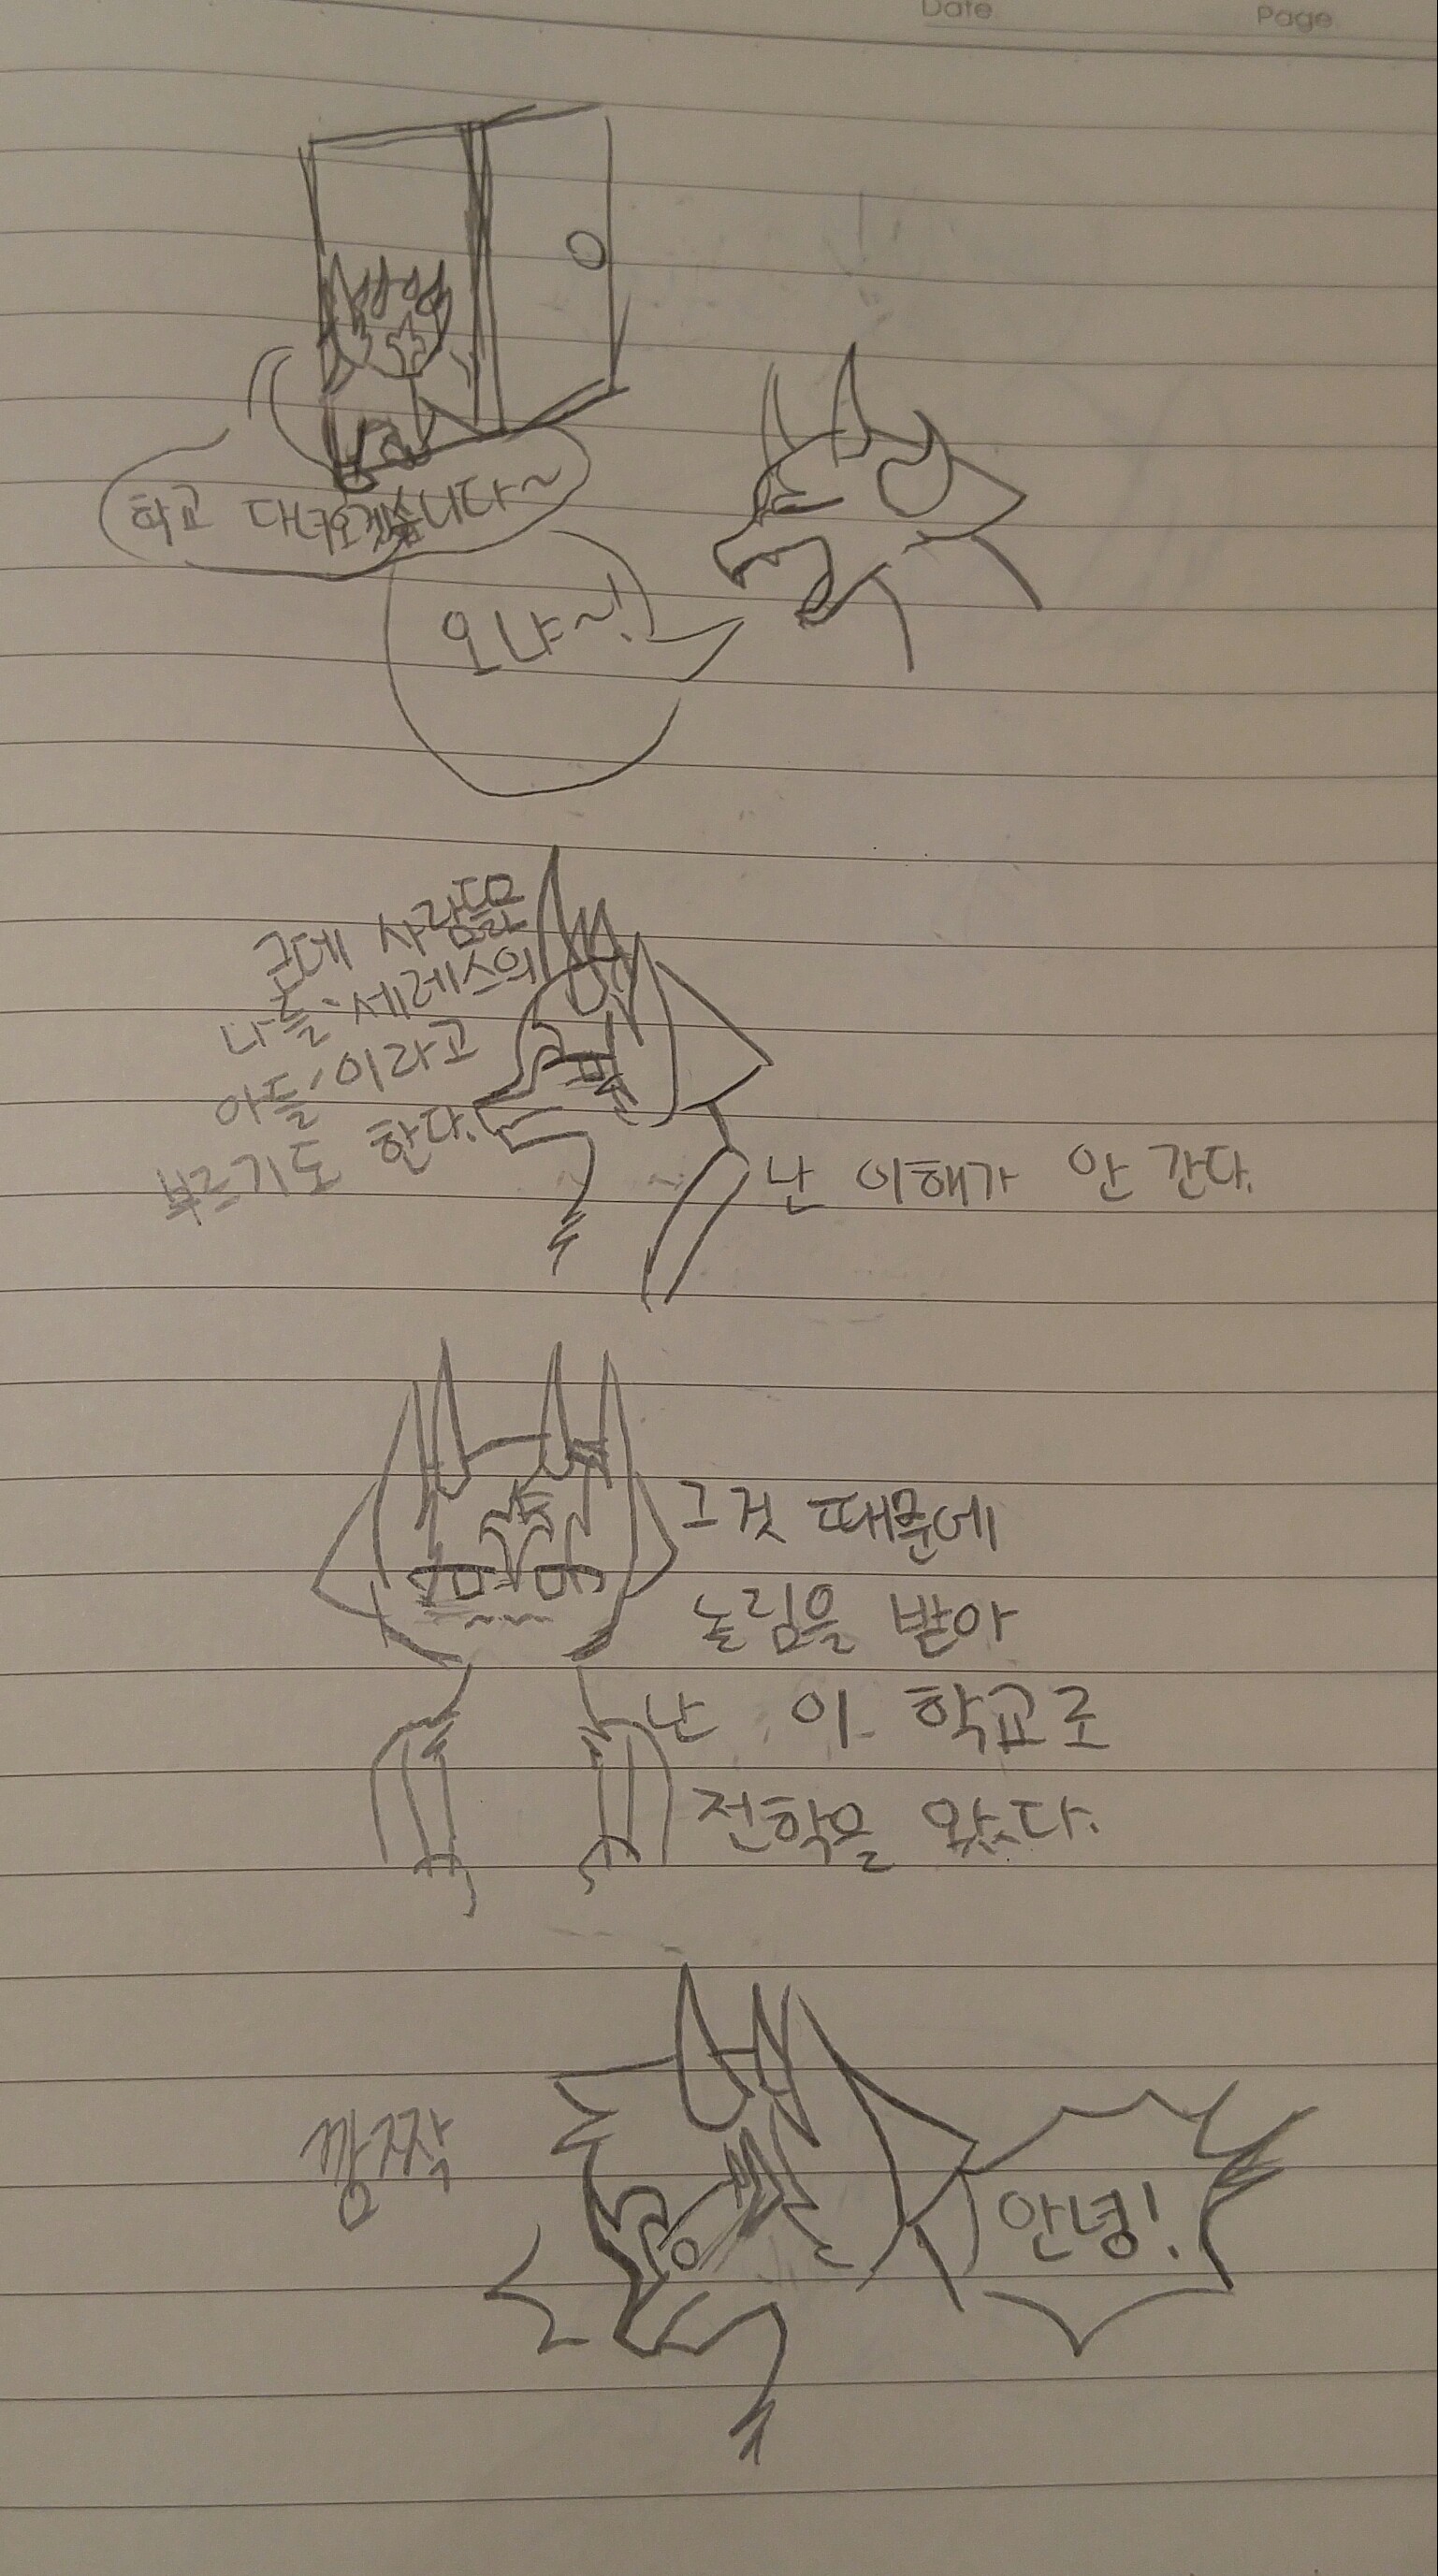 Date
Page
학교 다녀오겟습니다~
오냐~!
근데 사람들은
나를 '세레스의
아들'이라고
부르기도 한다.
난 이해가 안 간다.
그것 때문에
놀림을 받아
난 이 학교로
전학을 왔다.
깜짝
안녕!